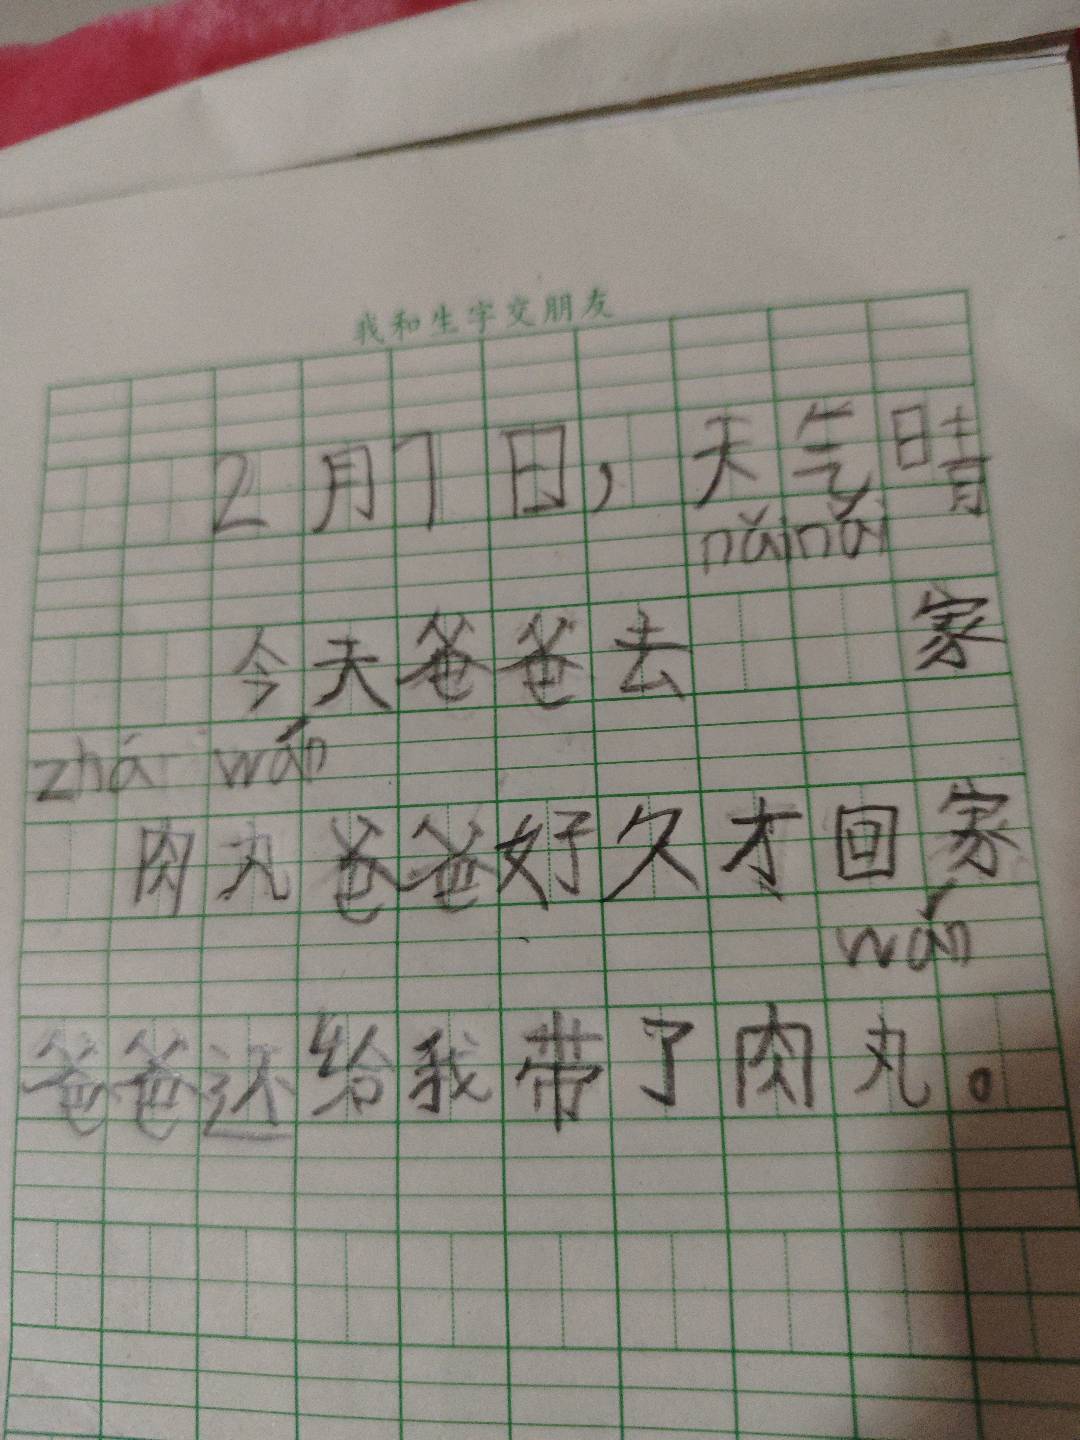 我和生字交朋友
2月7日，天气晴
nǎinǎi
今天爸爸去家
zhá wán
肉丸爸爸好久才回家
wán
爸爸还给我带了肉丸。